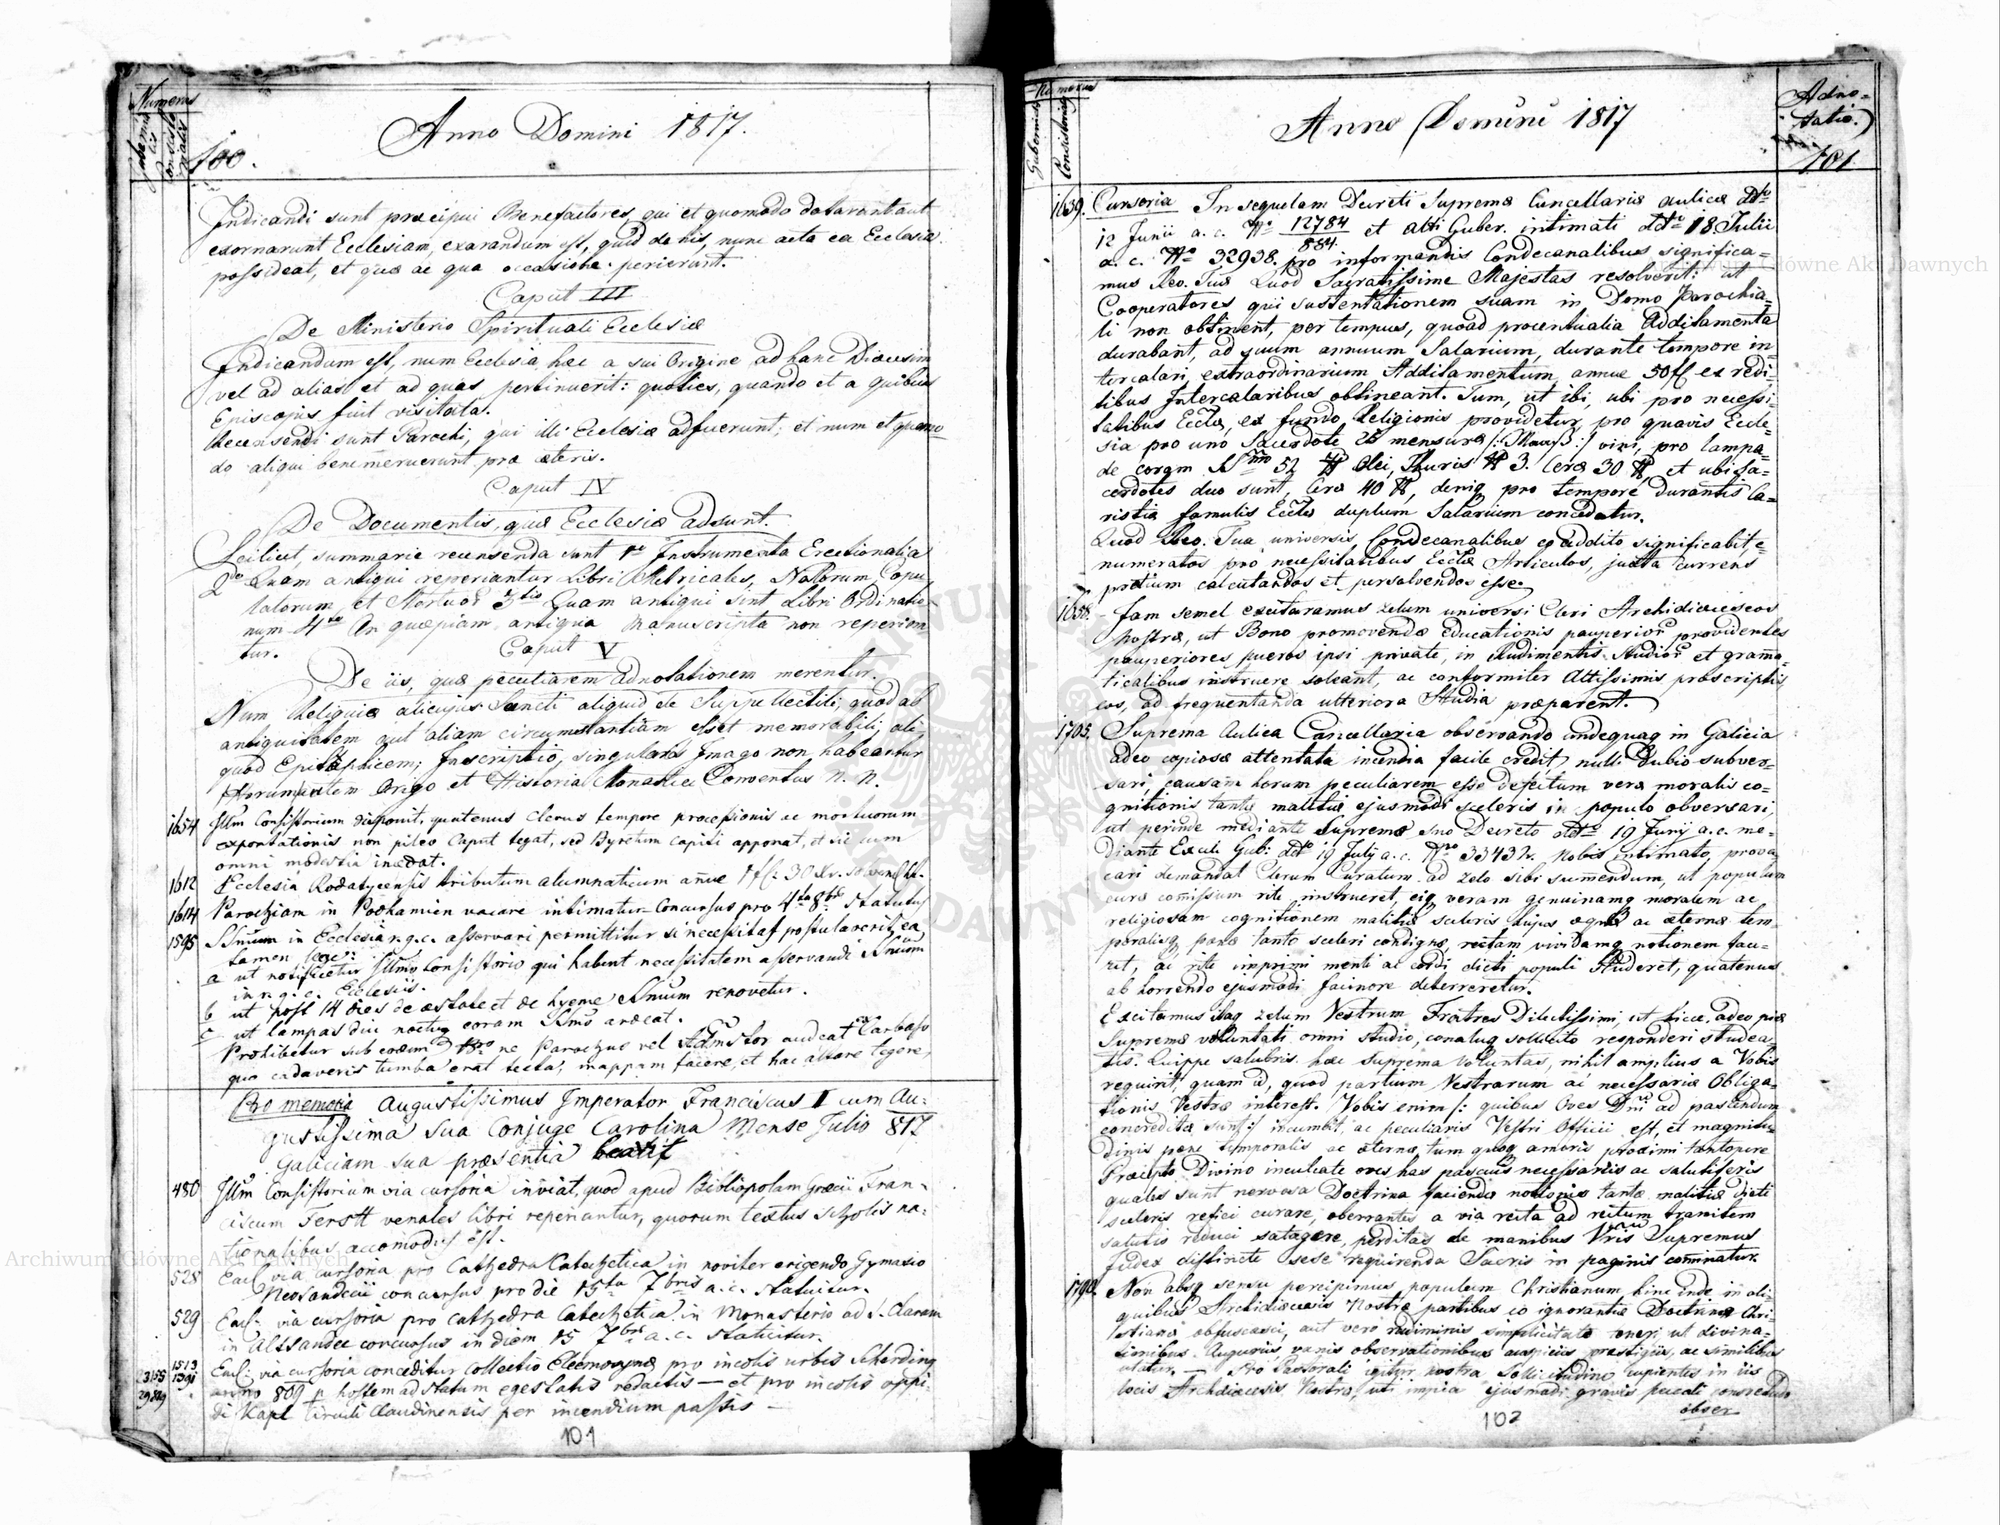 Numerus
Gubernialis
Consistorialis
100.
Anno Domini 1817.
Indicandi sunt præcipui Benefactores, qui et quomodo dotarunt aut
exornarunt Ecclesiam, exarandum est, quid de his, nunc acta ea Ecclesia
possideat, et quæ ac qua occasione perierunt.
Caput III
De Ministerio Spirituali Ecclesiæ
Indicandum est, num Ecclesia hæc a sui Origine ad hanc Diœcesim
vel ad alias et ad quas pertinuerit: quoties, quando et a quibus
Episcopis fuit visitata.
Recensendi sunt Parochi, qui illi Ecclesiæ adfuerunt, et num et quomo-
do aliqui benemeruerunt præ cæteris.
Caput IV
De Documentis, quæ Ecclesiæ adsunt.
Scilicet, summarie recensenda sunt 1o Instrumenta Erectionalia
2do Quam antiqui reperiantur Libri Metricales, Natorum, Copu-
latorum, et Mortuor 3tio Quam antiqui sint Libri Ordinatio-
num 4to An quæpiam antiqua Manuscripta non reperian-
tur.
Caput V
De iis, quæ peculiarem adnotationem merentur.
Num Reliquiæ alicujus Sancti aliquid de Suppellectili, quod ab
antiquitatem aut aliam circumstantiam esset memorabili, ali-
quod Epitaphicem; Inscriptio, singularis Imago non habeantur
Horum item Origo et Historia Monastica Conventus N. N.
1654 Illm Consistorium disponit, quatenus Clerus tempore processionis ac mortuorum
exportationis non pileo Caput tegat, sed Byretum capiti apponat, et sic cum
omni modestia incedat.
1612 Ecclesia Rodatycensis tributum alumnaticum añue 1 fl: 30 xr. solvendi
1614 Parochiam in Podkamien vacare intimatur Concursus pro 4ta 8bris statutus
1595 SSmum in Ecclesia r.g.c. asservari permittitur si necessitas postulaverit, ea
tamen lege:
a ut notificetur Illmo Consistorio qui habent necessitatem asservandi SSmum
in r. g. c. Ecclesiis.
b ut post 14 dies de æstate et de hyeme SSmum renovetur.
c ut lampas diu noctuq coram SSmo ardeat.
Prohibetur sub eodem No ne Parochus vel Admstor audeat ex Carbaso
quo cadaveris tumba erat tecta, mappam facere, et hac altare tegere,
Pro memoria Augustissimus Imperator Franciscus I cum Au-
gustissima sua Conjuge Carolina Mense Julio 817
Galiciam sua præsentia beavit
480 Illm Consistorium via cursoria inviat, quod apud Bibliopolam Græcii Fran-
ciscum Ferstl venales libri reperiantur, quorum textus scholis na-
tionalibus accomodus est.
528 Ead: via cursoria pro Cathedra Catechetica in noviter erigendo Gymnasio
Neosandecii concursus pro die 15ta 7bris a.c. statuitur.
529 Ead: via cursoria pro Cathedra Catechetica in Monasterio ad S. Claram
in Altsandec concursus in diem 15 7bri a.c. statuitur.
1513
1391 Ead: via cursoria conceditur Collectio Eleemosynæ pro incolis urbis Scherding
anno 809 p hostem ad statum egestatis redactis — et pro incolis oppi-
di Kapl Circuli Claudinensis per incendium passis —
101
Numerus
Gubernialis
Consistorialis
Anno Domini 1817
Adno-
tatio.
101
1639. Cursoria In sequelam Decreti Supremæ Cancellariæ aulicæ dto
12 Junii a. c. No 12784/884 et alti Guber. intimati dto 18. Julii
a. c. No 32938. pro informandis Condecanalibus significa-
mus Reo. Tuæ Quod Sacratissime Majestas resolverit: ut
Cooperatores qui sustentationem suam in Domo Parochia-
li non obtinent, per tempus, quoad procentualia Additamenta
durabant, ad suum annuum Salarium, durante tempore in-
tercalari, extraordinarium Additamentum annue 50 fl ex redi-
tibus Intercalaribus obtineant. Tum, ut ibi, ubi pro necessi-
tatibus Eccla, ex fundo Religionis providetur, pro quavis Eccle-
sia pro uno Sacerdote 26 mensuræ /: Maass :/ vini, pro lampa-
de coram SSmo 52 ℔ Olei, Thuris ℔ 3. Ceræ 30 ℔, et ubi sa-
cerdotes duo sunt, Cera 40 ℔, deniq pro tempore durantis Ca-
ristiæ famulis Eccla duplum Salarium concedatur.
Quod Reo. Tua universis Condecanalibus eo addito significabit, e-
numeratos pro necessitatibus Eccla Articulos, juxta currens
pretium calculandos et persolvendos esse.
1658. Jam semel excitaramus zelum universi Cleri Archidiœceseos
Nostræ, ut Bono promovendæ Educationis pauperior providentes
pauperiores pueros ipsi private, in Rudimentis Studior et gramma-
ticalibus instruere soleant, ac conformiter Altissimis præscriptis
eos, ad frequentanda ulteriora Studia præparent.
1705. Suprema Aulica Cancellaria observando undequaq in Galicia
adeo copiosa attentata incendia facile credit, nulli Dubio subver-
sari, causam horum peculiarem esse defectum veræ moralis co-
gnitionis tantæ malitiæ ejusmodi sceleris in populo obversari,
ut perinde mediante Supremo suo Decreto ddto 19 Junij a. c. me-
diante Excelsi Gub: dto 19 July a. c. Nro 33432. Nobis intimato, provo-
cari demandat Clerum Curatum ad zelo sibi sumendum, ut populum
curæ comissum rite instrueret, eiq veram genuinamq moralem ac
religiosam cognitionem malitiæ sceleris hujus æque ac æternæ tem-
poralisq pœnæ tanto sceleri condignæ, rectam vividamq notionem face-
ret, ac rite imprimi menti ac cordi dicti populi studeret, quatenus
ab horrendo ejusmodi facinore deterreretur.
Excitamus itaq zelum Vestrum Fratres Dilectissimi, ut huic adeo piæ
Supremæ voluntati omni studio, conatuq solicito responderi studea-
tis. Quippe salubris hæc suprema voluntas, nihil amplius a Vobis
requirit, quam id, quod partium Vestrarum ac necessariæ Obliga-
tionis Vestræ interest. Vobis enim /: quibus Oves Dni ad pascendum
concreditæ sunt :/ incumbit, ac peculiaris Vestri Officii est, et magnitu-
dinis pœnæ temporalis ac æternæ, tum quoq amoris proximi tantopere
Præcepto Divino inculcate oves has pascuis necessariis ac salutiferis
quales sunt nervosa Doctrina faciendæ notionis tantæ malitiæ dicti
sceleris refici curare, oberrantes a via recta ad rectum tramitem
salutis reduci satagere, perditas de manibus Vris Supremus
Judex districte sese requirenda Sacris in paginis comminatur.
1790. Non absq sensu percipimus populum Christianum hinc inde in ali-
quibus Archidiœcesis Nostræ partibus eo ignorantiæ Doctrinæ Chri-
stianæ obfuscari, aut vero nudiminis simplicitate teneri, ut divina-
tionibus Auguriis vanis observationibus auspiciis prestigiis, ac similibus
utatur. — Pro Pastorali igitur nostra Sollicitudine cupientes in iis
locis Archdiœcesis Nostræ, uti impia ejusmodi gravis peccati consuetudo
obser
102
Archiwum Główne Akt Dawnych
Archiwum Główne Akt Dawnych